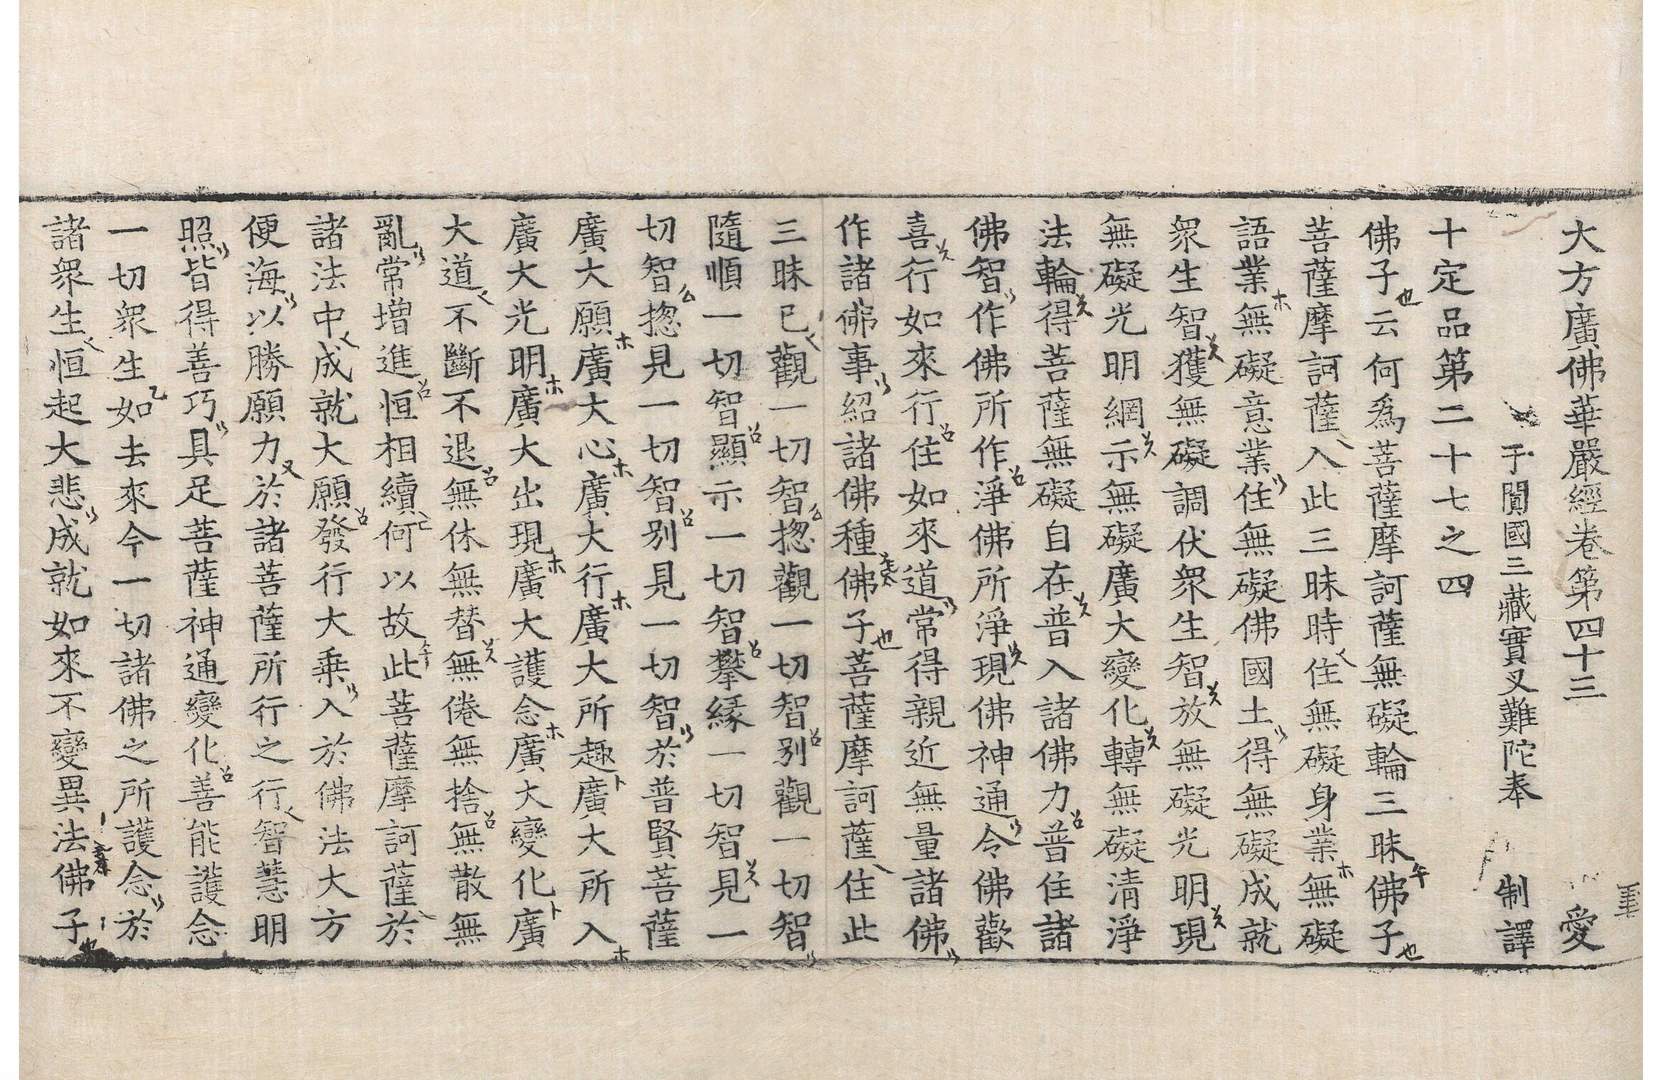 大方廣佛華嚴經卷第四十三 愛
于闐國三藏實叉難陀奉 制譯
十定品第二十七之四
佛子云何爲菩薩摩訶薩無礙輪三昧佛子
菩薩摩訶薩入此三昧時住無礙身業無礙
語業無礙意業住無礙佛國土得無礙成就
衆生智獲無礙調伏衆生智放無礙光明現
無礙光明網示無礙廣大變化轉無礙清淨
法輪得菩薩無礙自在普入諸佛力普住諸
佛智作佛所作淨佛所淨現佛神通令佛歡
喜行如來行住如來道常得親近無量諸佛
作諸佛事紹諸佛種佛子菩薩摩訶薩住此
三昧已觀一切智揔觀一切智別觀一切智
隨順一切智顯示一切智攀緣一切智見一
切智揔見一切智別見一切智於普賢菩薩
廣大願廣大心廣大行廣大所趣廣大所入
廣大光明廣大出現廣大護念廣大變化廣
大道不斷不退無休無替無倦無捨無散無
亂常增進恒相續何以故此菩薩摩訶薩於
諸法中成就大願發行大乘入於佛法大方
便海以勝願力於諸菩薩所行之行智慧明
照皆得善巧具足菩薩神通變化善能護念
一切衆生如去來今一切諸佛之所護念於
諸衆生恒起大悲成就如來不變異法佛子